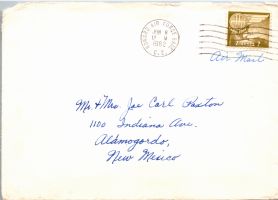 AIR FORCE
PM
1962
Air Mail
Mr. & Mrs. Joe Carl Paxton
1100 Indiana Ave.
Alamogordo,
New Mexico